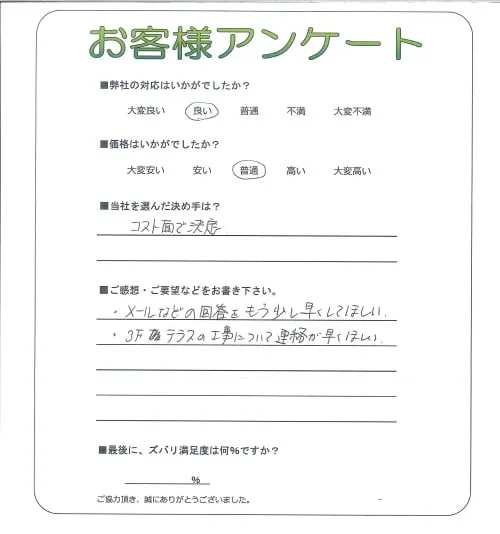 お客様アンケート
■弊社の対応はいかがでしたか？
大変良い 良い 普通 不満 大変不満
■価格はいかがでしたか？
大変安い 安い 普通 高い 大変高い
■当社を選んだ決め手は？
コスト面で決定.
■ご感想・ご要望などをお書き下さい。
・メールなどの回答をもう少し早くしてほしい.
・3F テラスの工事について連絡が早くほしい.
■最後に、ズバリ満足度は何%ですか？
%
ご協力頂き、誠にありがとうございました。